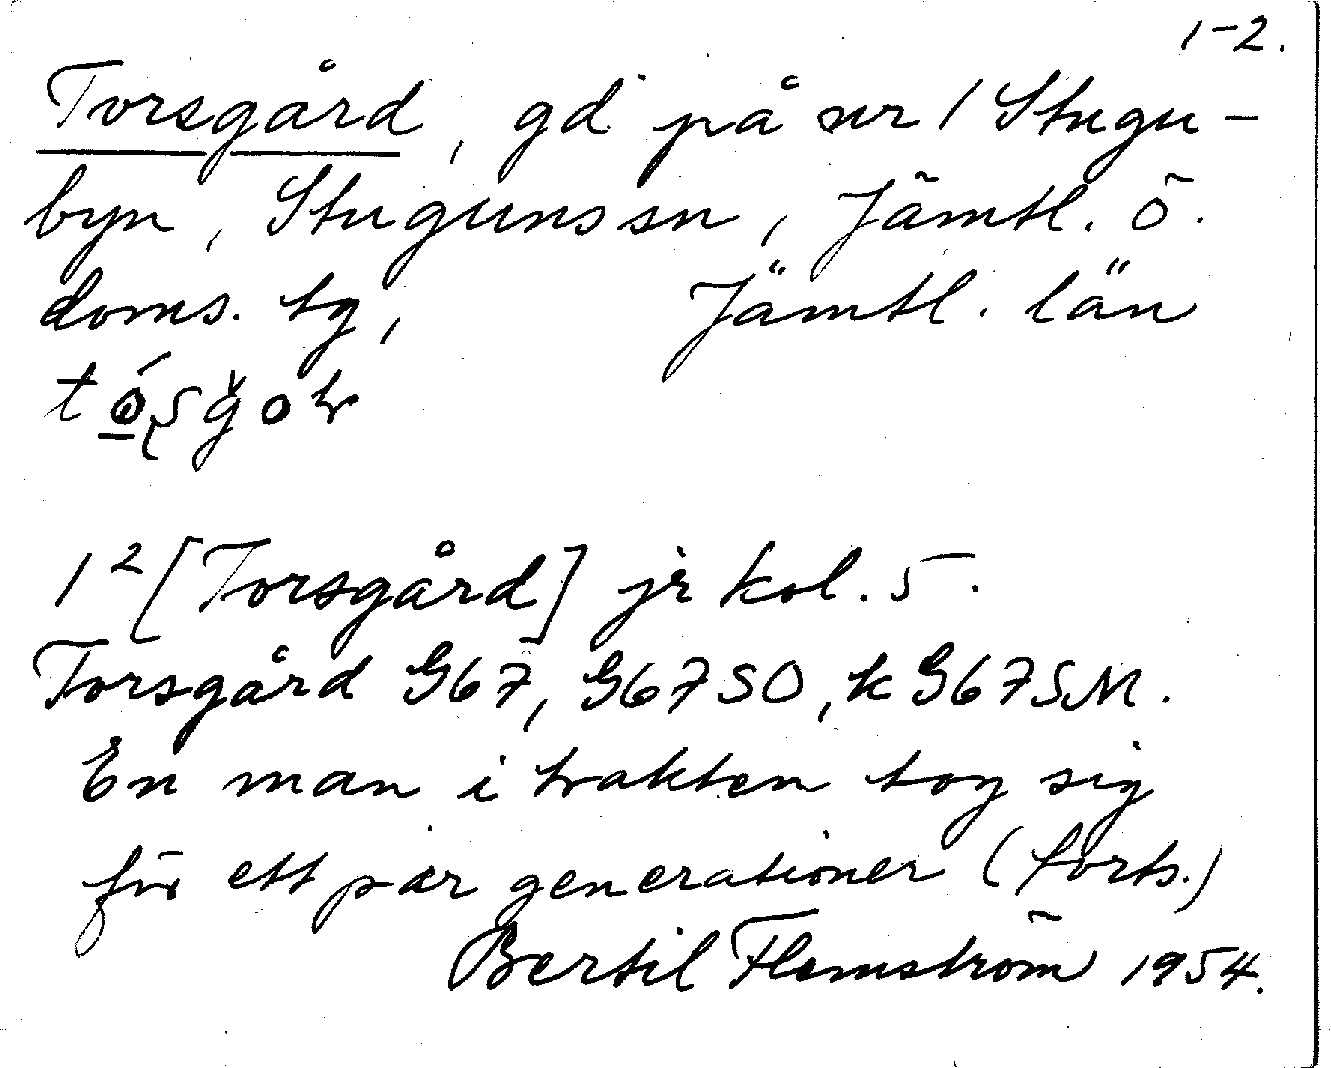 1-2.
Torsgård, gd på nr 1 Stugu-
byn, Stuguns sn, Jämtl. ö.
doms. tg, Jämtl. län
1² [Torsgård] jr kol. 5.
Torsgård G67, G67SO, k G67SM.
En man i trakten tog sig
för ett par generationer (forts.)
Bertil Flemström 1954.